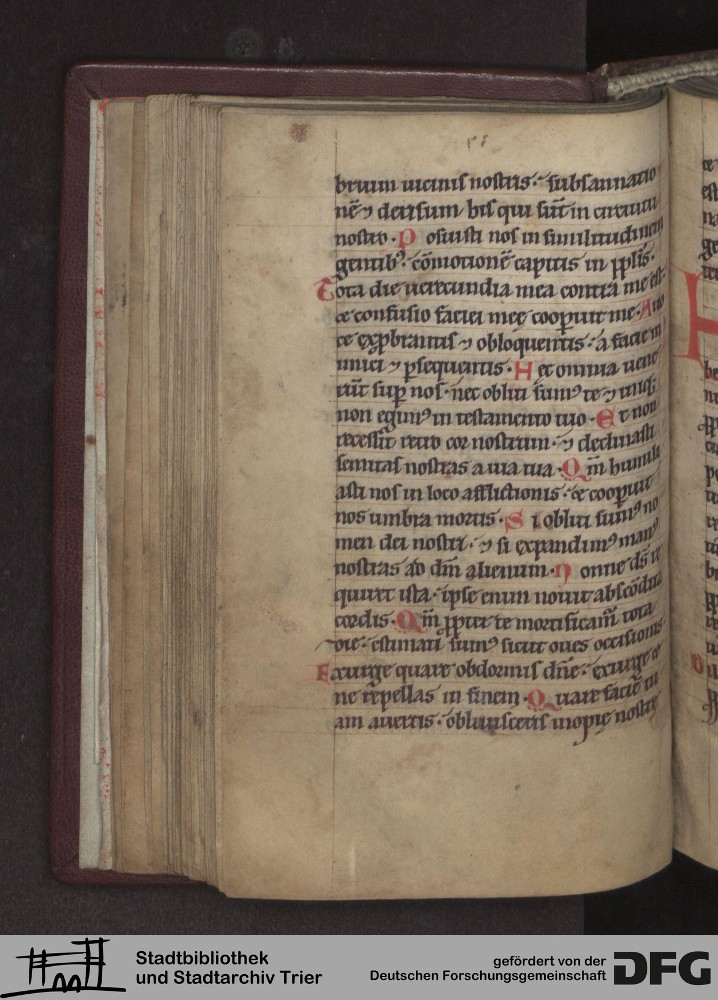 brium uicinis nostris. subsannatio
nē ⁊ derisum his qui sūt in circuitu
nostro. Posuisti nos in similitudinem
gentibꝰ. cōmotionē capitis in pplis.
Tota die uerecundia mea contra me est.
et confusio faciei mee cooꝑuit me. A uo
ce exꝓbrantis ⁊ obloquentis. a facie in
imici ⁊ ꝑsequentis. Hec omnia uene
rūt suꝑ nos. nec obliti sumꝰ te ⁊ inique
non egimꝰ in testamento tuo. Et non
recessit retro cor nostrum. ⁊ declinasti
semitas nostras a uia tua. Qm̄ humili
asti nos in loco afflictionis. et cooꝑuit
nos umbra mortis. Si obliti sumꝰ no
men dei nostri. ⁊ si expandimꝰ manꝰ
nostras ad dm̄ alienum. Nonne ds̄ re
quiret ista. ipse enim nouit abscōdita
cordis. Qm̄ ꝓpter te mortificamur tota
die. estimati sumꝰ sicut oues occisionis.
Exurge quare obdormis dn̄e. exurge et
ne repellas in finem. Quare faciē tu
am auertis. obliuisceris inopie nostre
Stadtbibliothek
und Stadtarchiv Trier
gefördert von der
Deutschen Forschungsgemeinschaft
DFG